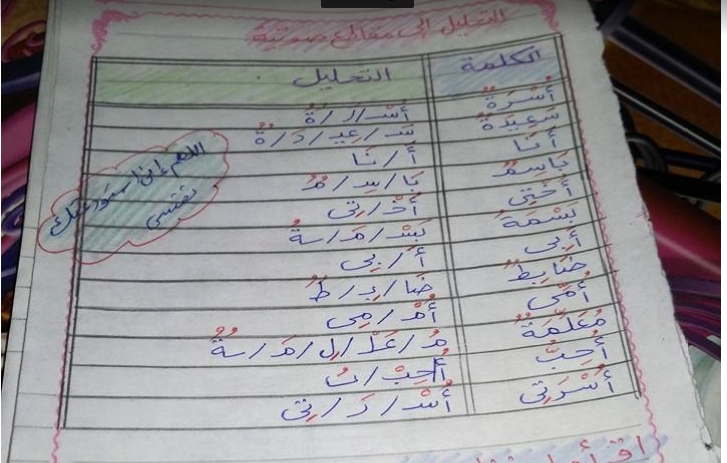 التحليل إلى مقاطع صوتية
الكلمة التحليل
أُسْرَةٌ أُسْ/رَ/ةٌ
سَعِيدَةٌ سَ/عِيـ/دَ/ةٌ
أَنَا أَ/نَا
بَاسِمٌ بَا/سِـ/مٌ
أُخْتِي أُخْـ/تِي
بَسْمَةٌ بَسْـ/مَـ/ـةٌ
أَبِي أَ/بِي
ضَابِطٌ ضَا/بِـ/طٌ
أُمِّي أُمْـ/مِي
مُعَلِّمَةٌ مُـ/عَلْـ/لِـ/مَـ/ـةٌ
أُحِبُّ أُحِبْـ/بُ
أُسْرَتِي أُسْـ/رَ/تِي
اللهم إني استودعتك
نفسي